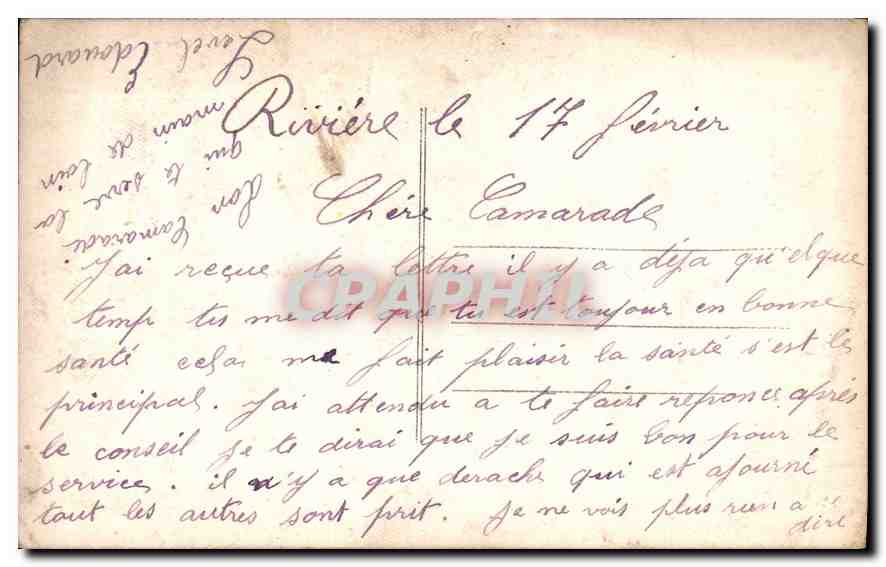 Rivière le 17 février
Chère Camarade
J'ai reçue ta lettre il y a déja qu'elque
temp tu me dit que tu est toujour en bonne
santé cela me fait plaisir la santé s'est le
principal. J'ai attendu a te faire reponce après
le conseil je te dirai que je suis bon pour le
service. il n'y a que derache qui est ajourné
tout les autres sont prit. Je ne vois plus rien a
dire
Ton Camarade
qui te serre la
main de loin
Level Edouard
CPAPHIL